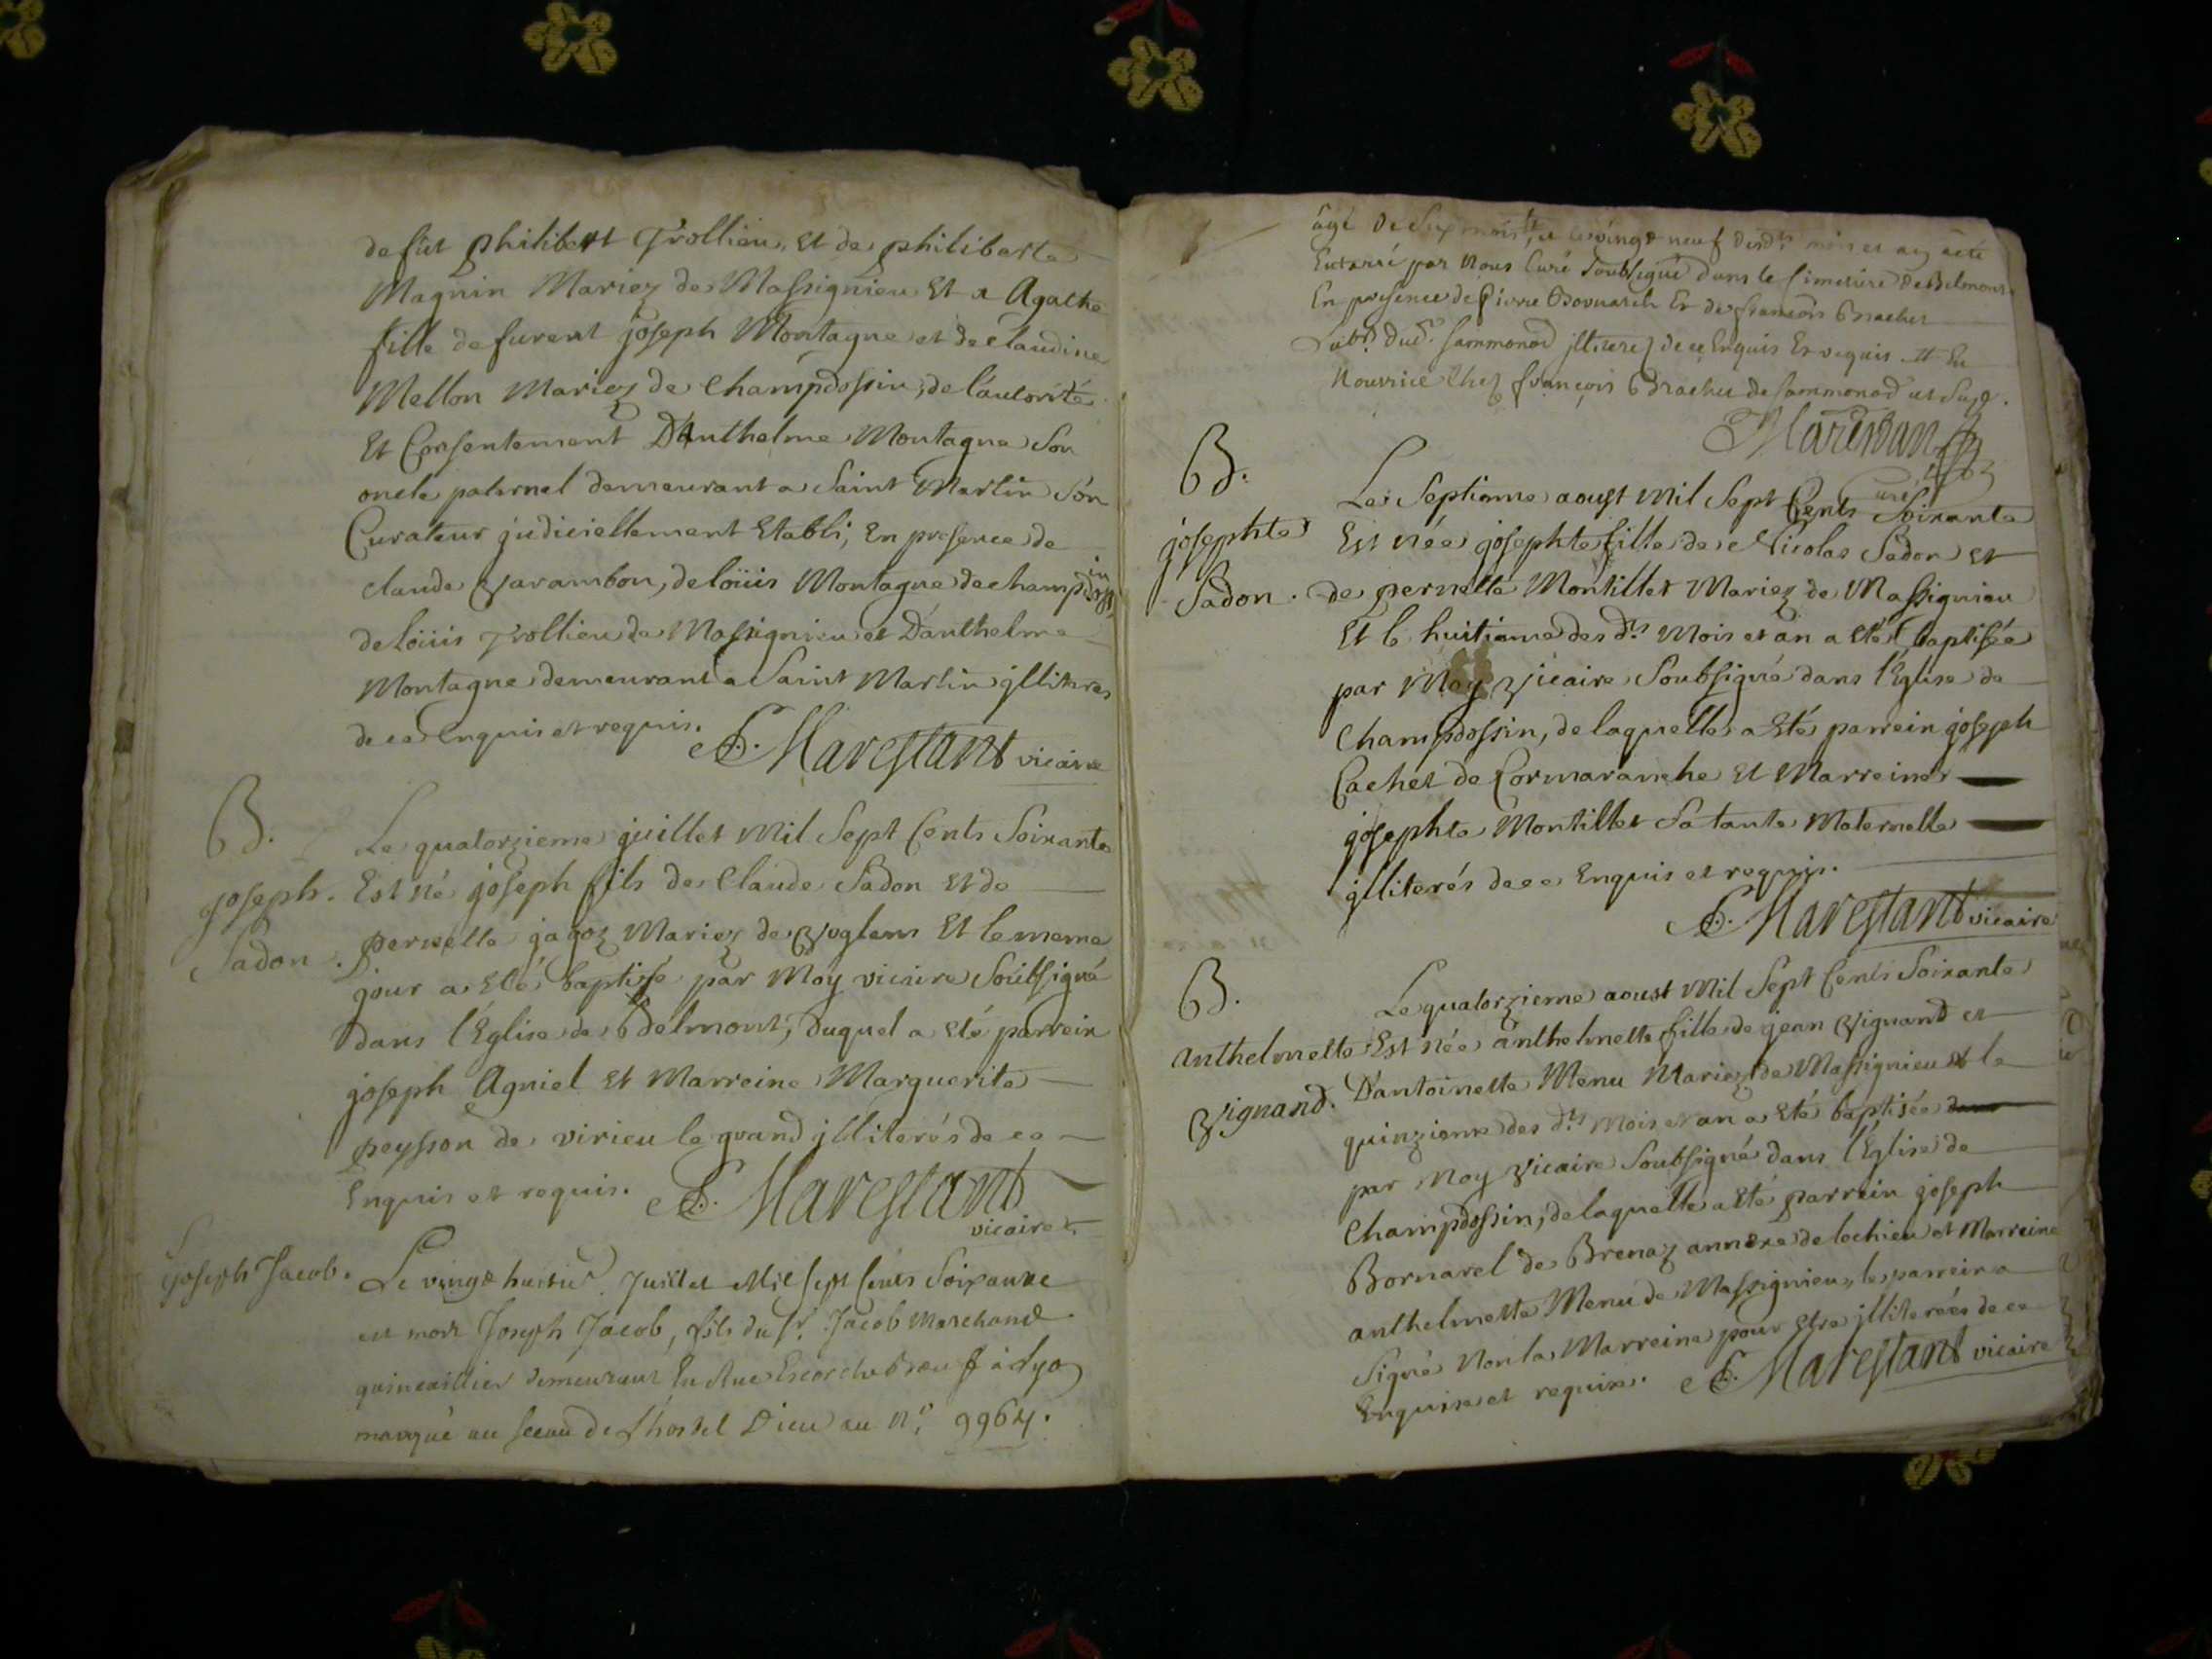 de fût philibert Trollieu, et de philiberte
Magnin Mariez de Massignieu Et a Agathe
fille de furent joseph Montagne et de claudine
Mellon Mariez de Champdossin, de l'autorité
Et Consentement D'Anthelme Montagne Son
oncle paternel demeurant a Saint Martin Son
Curateur judiciellement Etabli, En presence de
claude Varambon, de loüis Montagne de champdossin
de loüis Trollieu de Massignieu et D'anthelme
Montagne demeurant a Saint Martin jlliteres
de ce Enquis et requis. Marestant vicaire
B. Le quatorzieme juillet Mil Sept Cents Soixante
joseph. Est né joseph fils de Claude Sadon Et de
Sadon. pernette jagoz Mariez de Voglens Et le meme
jour a Eté baptisé par Moy vicaire Soubsigné
dans l'Eglise de Belmont, duquel a Eté parrein
joseph Agniel Et Marreine Marguerite
peysson de virieu le grand jlliterés de ce
Enquis et requis. Marestant
vicaire
Joseph Jacob. Le vingt huitie. Juillet Mil sept Cents Soixante
est mort Joseph Jacob, fils du Sr. Jacob Marchand
quincaillier demeurant En Rue Escorchebeuf à Lyon
marqué au sceau de L'hostel Dieu au N.o 9964.
âgé de Six mois, et le vingt neuf desd.ts mois et an a été
Enterré par Nous Curé Soubsigné dans le Cimetiere de Belmont
En presence de Pierre Et de françois Brachet
Lab.rs dud.t Sammonod jlliterez de ce Enquis Et requis Et En
Nourrice Chez françois Brachet de Sammonod
Marestan
Curé
B. Le Septieme aoust Mil Sept Cents Soixante
josephte Est née josephte fille de Nicolas Sadon et
Sadon. de pernette Montillet Mariez de Massignieu
Et le huitieme des d.ts Mois et an a Eté baptisée
par Moy Vicaire Soubsigné dans l'Eglise de
Champdossin, de laquelle a Eté parrein joseph
Cachet de Cormaranche Et Marreine
josephte Montillet Sa tante Maternelle
jlliterés de ce Enquis et requis.
Marestant vicaire
B. Le quatorzieme aoust Mil Sept Cents Soixante
anthelmette Est née anthelmette fille de jean Vignand et
Vignand. D'antoinette Menu Mariez de Massignieu et le
quinzieme des d.ts Mois et an a Eté baptisée
par Moy Vicaire Soubsigné dans l'Eglise de
Champdossin, de laquelle a Eté parrein joseph
Bornarel de Brenaz annexe de lochieu et Marreine
anthelmette Menu de Massignieu, le parrein a
Signé Non la Marreine pour Etre jlliterée de ce
Enquise et requise. Marestant vicaire